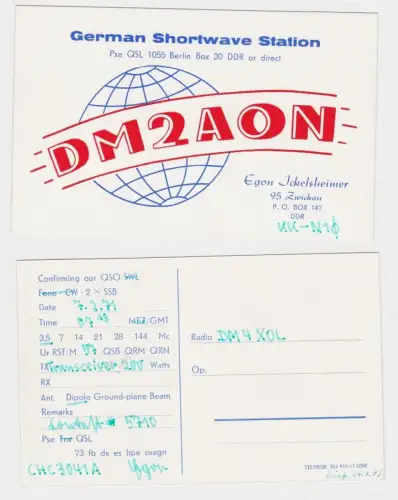 German Shortwave Station
Pse QSL 1055 Berlin Box 30 DDR or direct
DM2AON
Egon Ickelsheimer
95 Zwickau
P. O. BOX 147
DDR
KK-N1Ø
Confirming our QSO SWL
Fone CW - 2 × SSB
Date 7.2.71
Time MEZ/GMT
3,5 7 14 21 28 144 Mc
Ur RST/M 59 QSB QRM QRN
TX Transceiver 20W Watts
RX
Ant. Dipole Ground-plane Beam
Remarks
Contact # 5710
Pse tnx QSL
73 fb dx es hpe cuagn
CHC3041A Egon
Radio DM4XOL
Op.
DDR